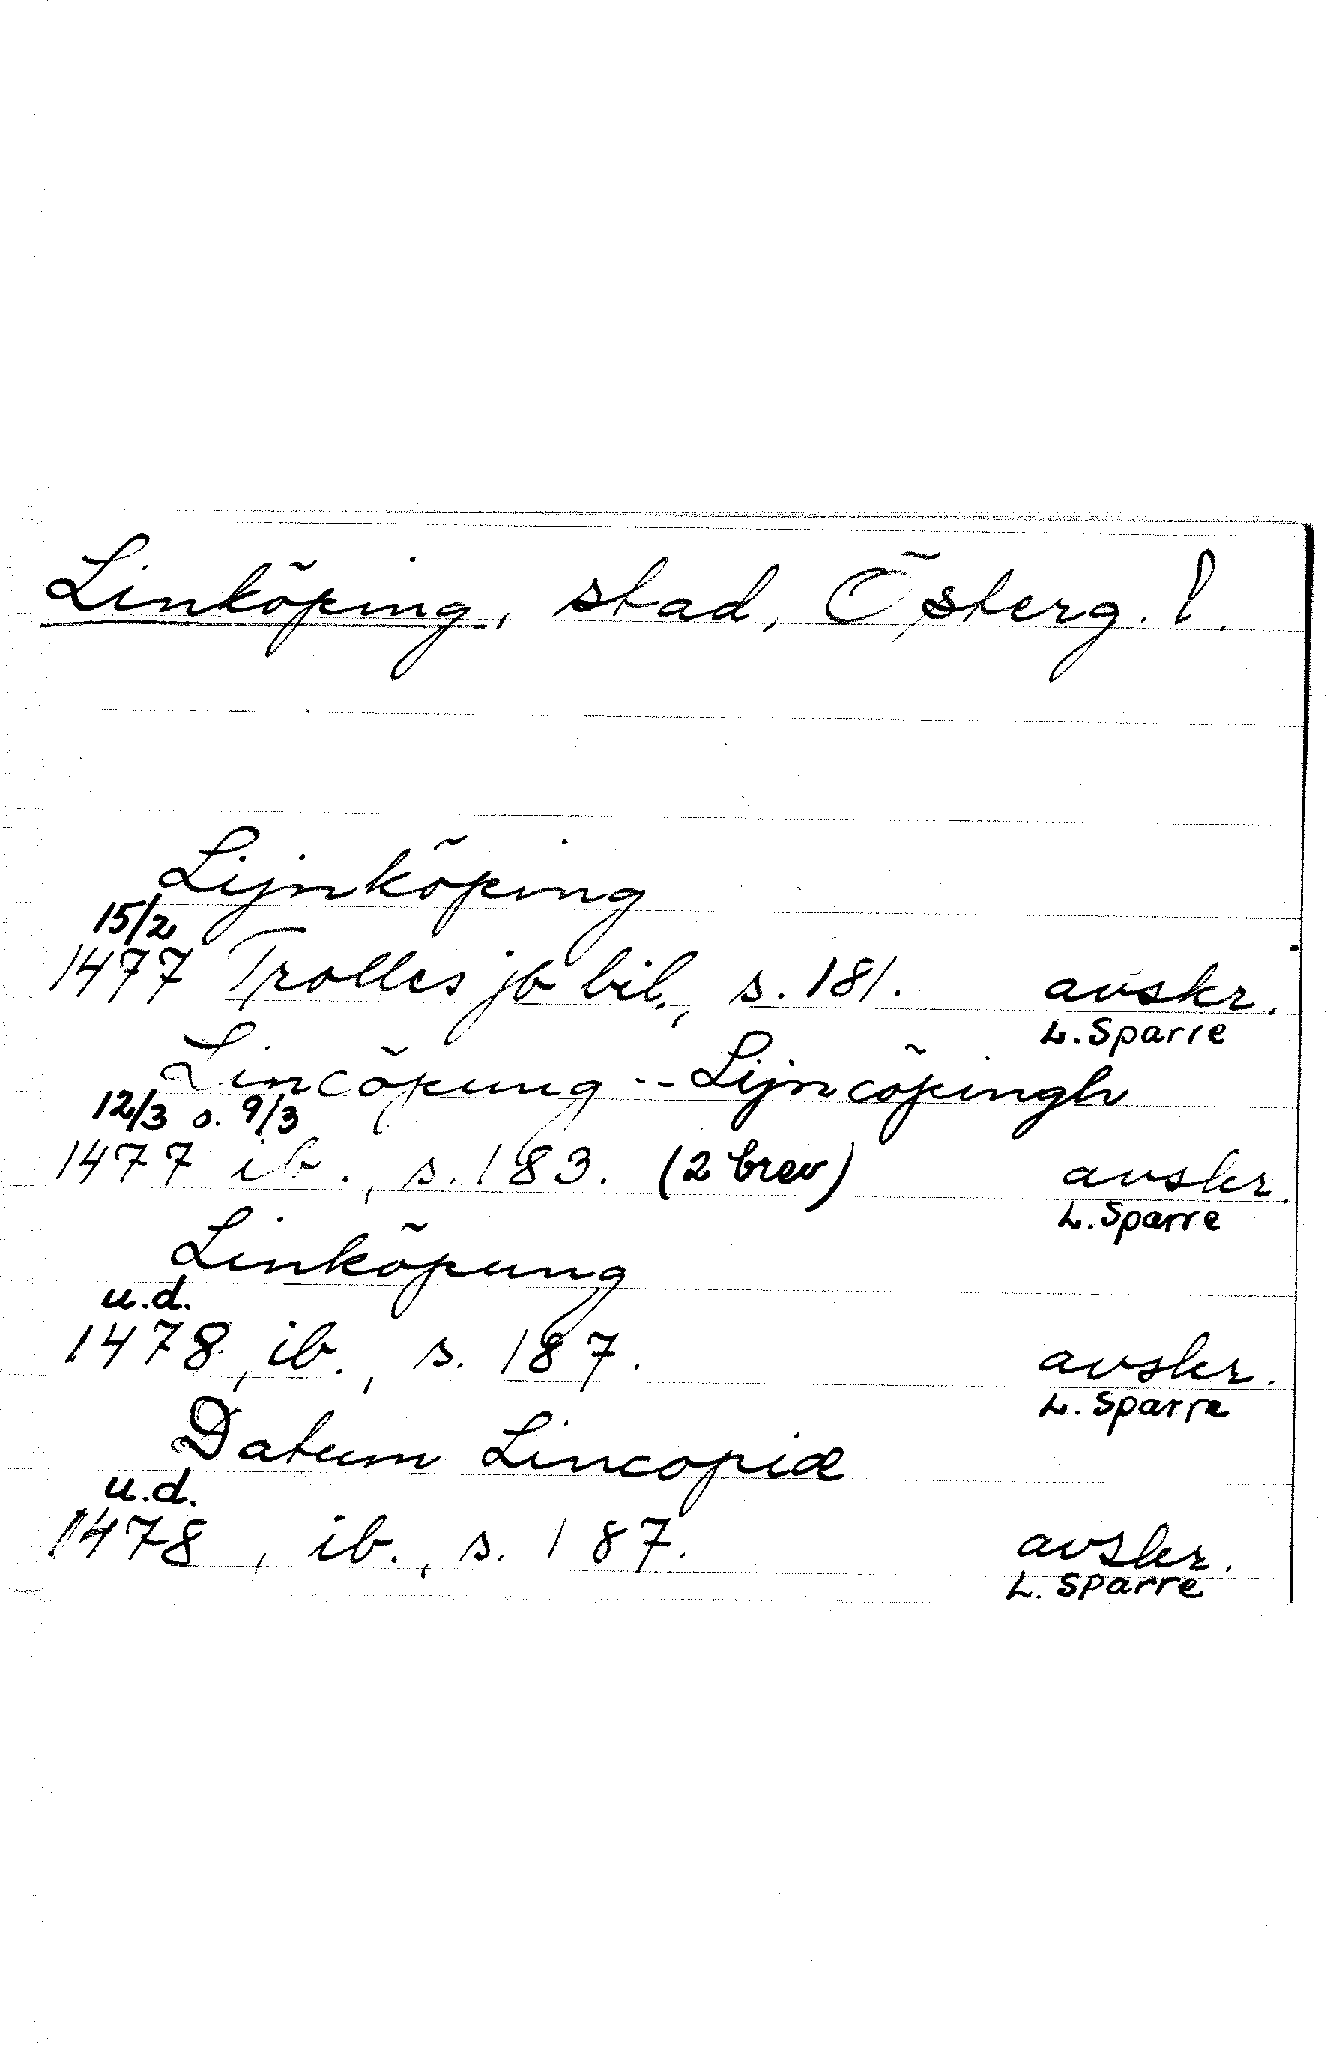 Linköping, stad, Österg. l.
Lijnköping
15/2
1477 Trolles jb bil., s. 181. avskr.
L. Sparre
Lincöpung -- Lijncöpingh
12/3 o. 9/3
1477 ib., s. 183. (2 brev) avskr.
L. Sparre
Linköpung
u.d.
1478, ib., s. 187. avskr.
L. Sparre
Datum Lincopiæ
u.d.
1478, ib., s. 187. avskr.
L. Sparre